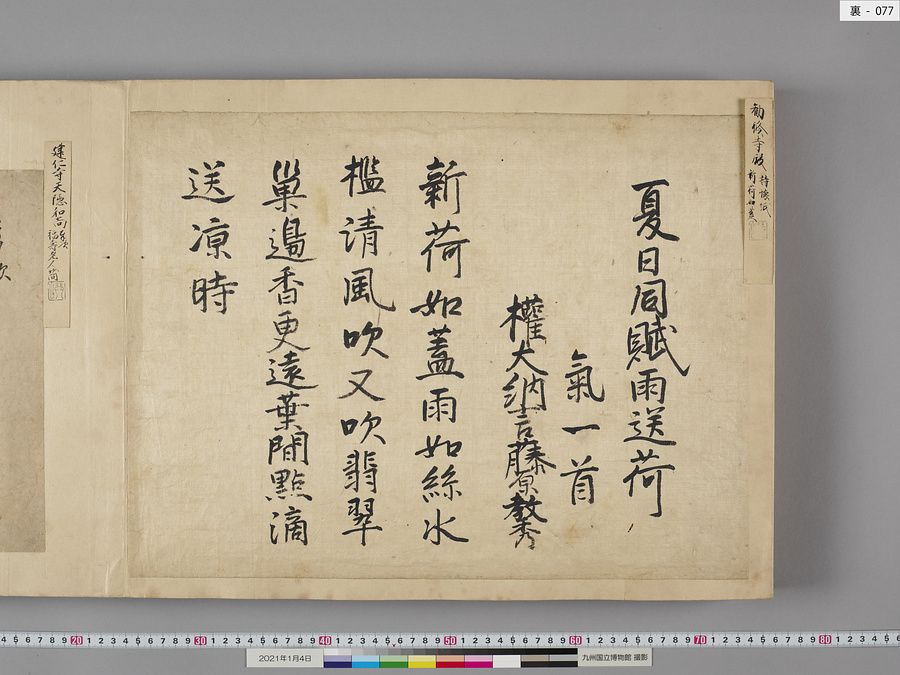 裏 - 077
勧修寺殿
夏日同賦雨送荷
氣一首
權大納言藤原教秀
新荷如蓋雨如絲水
檻請風吹又吹翡翠
巢邊香更遠葉間點滴
送凉時
建仁寺天隠和尚
2021年1月4日
九州国立博物館 撮影